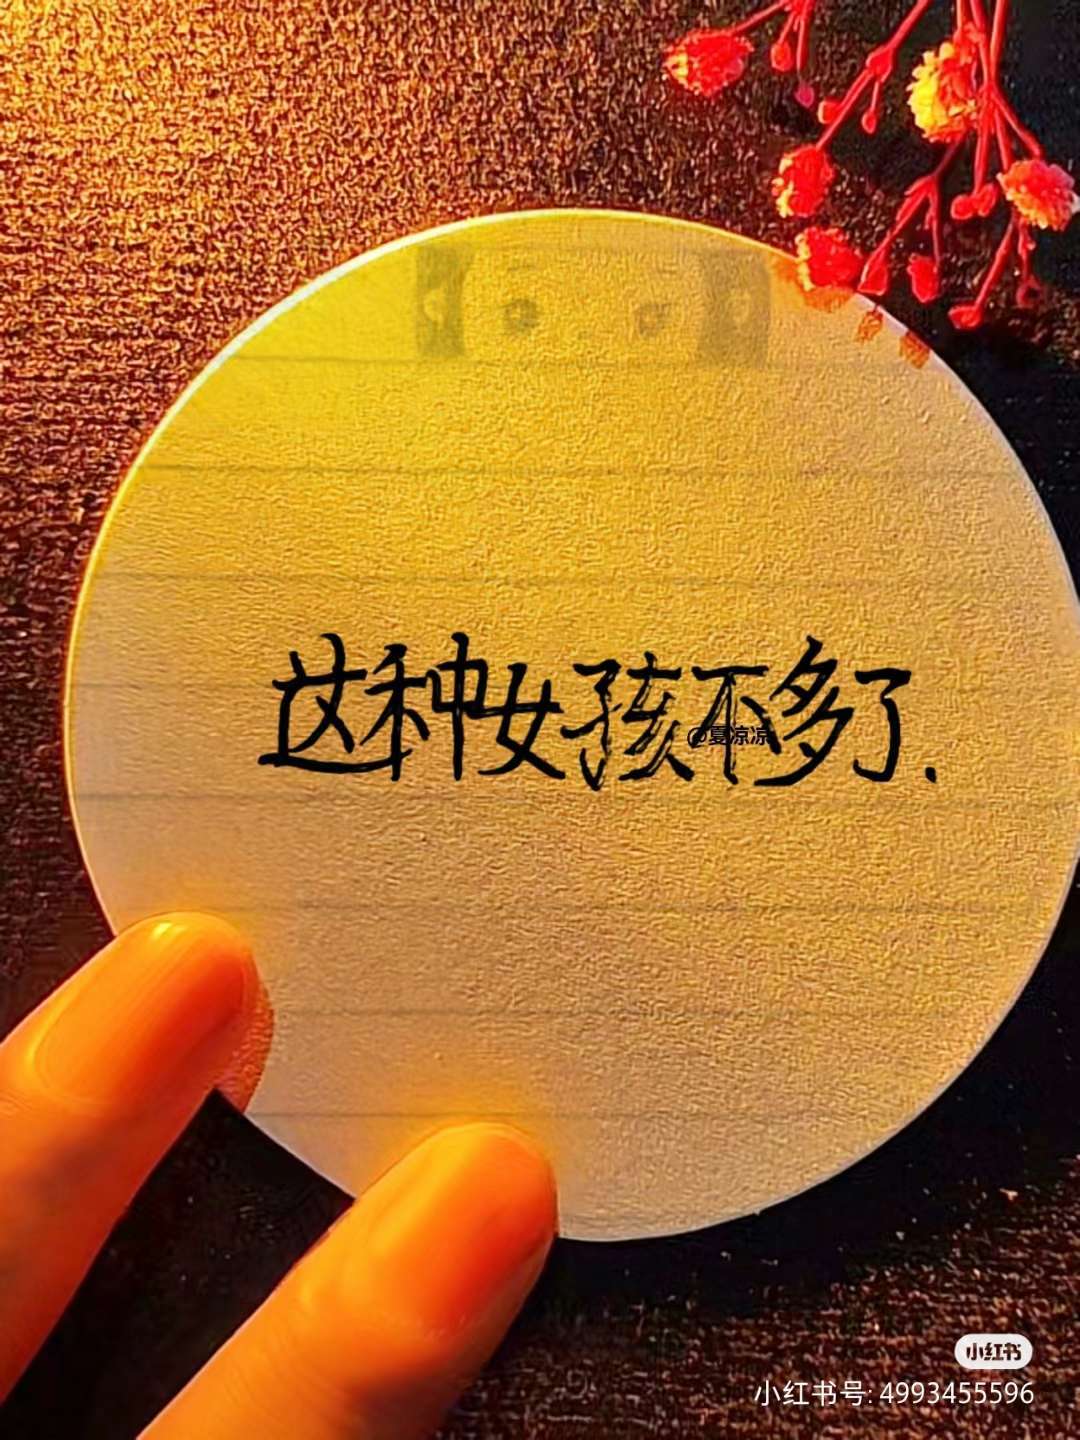 这种女孩不多了.
@夏凉凉
小红书
小红书号: 4993455596